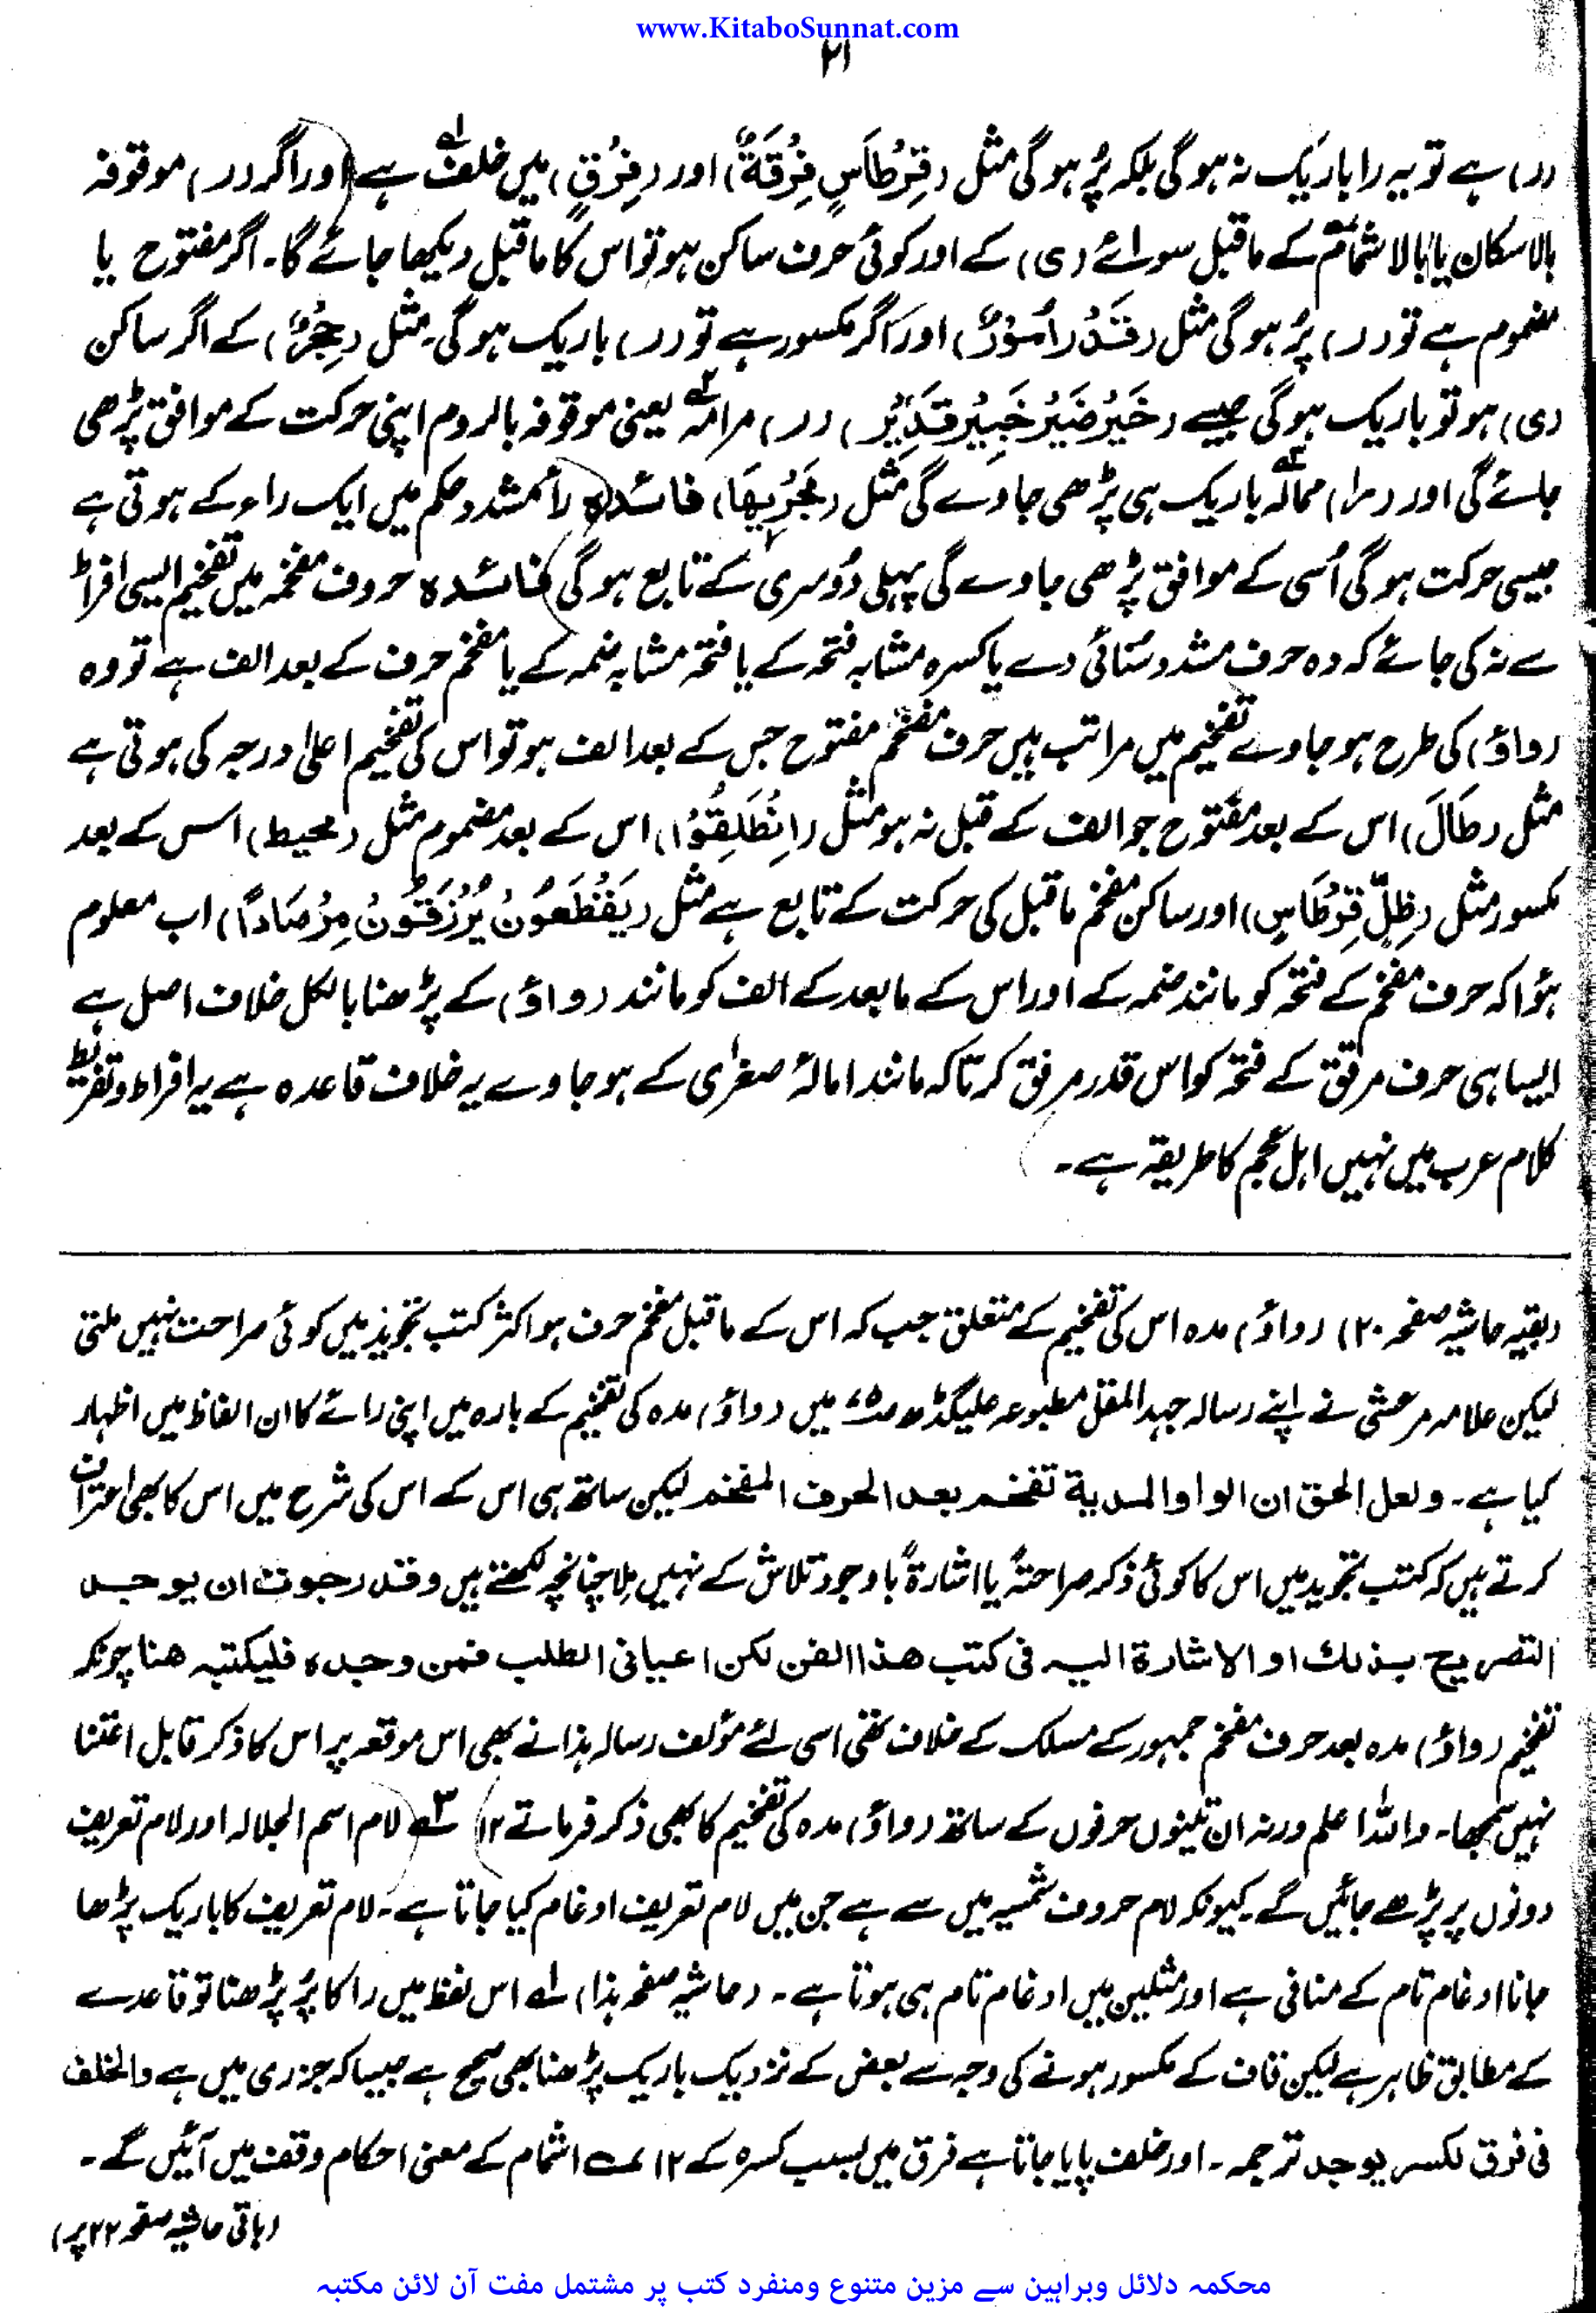 www.KitaboSunnat.com
۲۱
(ر) ہے تو یہ را باریک نہ ہوگی بلکہ پُر ہوگی مثل (قِرْطَاسٍ فِرْقَةٍ) اور (فِرْقٍ) میں خلف ہے اور اگر (ر) موقوفہ
بالاسکان یا بالاشمام کے ماقبل سوائے (ی) کے اور کوئی حرف ساکن ہو تو اس کا ماقبل دیکھا جائے گا۔ اگر مفتوح یا
مضموم ہے تو (ر) پُر ہوگی مثل (قَدْرِ اُمُوْرٌ) اور اگر مکسور ہے تو (ر) باریک ہوگی۔ مثل (حِجْرٌ) کے اگر ساکن
(ی) ہو تو باریک ہوگی جیسے (خَیْرْ ضَیْرْ خَبِیْرْ قَدِیْرْ) (ر) مرامہ یعنی موقوفہ بالروم اپنی حرکت کے موافق پڑھی
جائے گی اور (را) ممالہ باریک ہی پڑھی جاوے گی مثل (مَجْرٖىهَا) فائدہ رائمشدد حکم میں ایک راء کے ہوتی ہے
جیسی حرکت ہوگی اُسی کے موافق پڑھی جاوے گی پہلی دُوسری کے تابع ہوگی فائدہ حروف مفخمہ میں تفخیم ایسی افراط
سے نہ کی جائے کہ وہ حرف مشدد سُنائی دے یا کسرہ مشابہ فتحہ کے یا فتحہ مشابہ ضمہ کے یا مفخم حرف کے بعد الف ہے تو وہ
(واؤ) کی طرح ہو جاوے تفخیم میں مراتب ہیں حرف مفخم مفتوح جس کے بعد الف ہو تو اس کی تفخیم اعلیٰ درجہ کی ہوتی ہے
مثل (طَالَ) اس کے بعد مفتوح جو الف کے قبل نہ ہو مثل (اِنْطَلِقُوْا) اس کے بعد مضموم مثل (محیط) اس کے بعد
مکسور مثل (ظِلٍّ قِرْطَاسٍ) اور ساکن مفخم ماقبل کی حرکت کے تابع ہے مثل (یَقْطَعُوْنَ یُرْزَقُوْنَ مِرْصَادًا) اب معلوم
ہؤا کہ حرف مفخم کے فتحہ کو مانند ضمہ کے اور اس کے مابعد کے الف کو مانند (واؤ) کے پڑھنا بالکل خلاف اصل ہے
ایسا ہی حرف مرقق کے فتحہ کو اس قدر مرقق کرتا کہ مانند امالۂ صغرٰی کے ہو جاوے یہ خلاف قاعدہ ہے یہ افراط و تفریط
کلام عرب میں نہیں اہل عجم کا طریقہ ہے۔
(بقیہ حاشیہ صفحہ ۲۰) (واؤ) مدہ اس کی تفخیم کے متعلق جب کہ اس کے ماقبل مفخم حرف ہو اکثر کتب تجوید میں کوئی صراحت نہیں ملتی
لیکن علامہ مرعشی نے اپنے رسالہ جہد المقل مطبوعہ علیگڈھ میں (واؤ) مدہ کی تفخیم کے بارہ میں اپنی رائے کا ان الفاظ میں اظہار
کیا ہے۔ ولعل الحق ان الواو المدیة تفخم بعد الحروف المفخم لیکن ساتھ ہی اس کے اس کی شرح میں اس کا بھی اعتراف
کرتے ہیں کہ کتب تجوید میں اس کا کوئی ذکر صراحتہً یا اشارۃً باوجود تلاش کے نہیں مِلا چنانچہ لکھتے ہیں وقد رجوت ان یوجد
التصریح بذلك او الاشارة الیہ فی کتب ھذا الفن لکن اعیانی الطلب فمن وجدہ فلیکتبہ ھنا چونکہ
تفخیم (واؤ) مدہ بعد حرف مفخم جمہور کے مسلک کے خلاف تھی اسی لئے مؤلف رسالہ ہذا نے بھی اس موقعہ پر اس کا ذکر قابل اعتنا
نہیں سمجھا۔ واللہ اعلم ورنہ ان تینوں حرفوں کے ساتھ (واؤ) مدہ کی تفخیم کا بھی ذکر فرماتے ۱۲ ۳ے لام اسم الجلالہ اور لام تعریف
دونوں پر پڑھے جائیں گے۔ کیونکہ لام حروف شمسیہ میں سے ہے جن میں لام تعریف ادغام کیا جاتا ہے۔ لام تعریف کا باریک پڑھا
جانا ادغام تام کے منافی ہے اور مثلین میں ادغام تام ہی ہوتا ہے۔ (حاشیہ صفحہ ہذا) ۱ے اس لفظ میں را کا پُر پڑھنا تو قاعدے
کے مطابق ظاہر ہے لیکن قاف کے مکسور ہونے کی وجہ سے بعض کے نزدیک باریک پڑھنا بھی صحیح ہے جیسا کہ جزری میں ہے والخلف
فی فرق لکسر یوجد ترجمہ۔ اور خلف پایا جاتا ہے فرق میں بسبب کسرہ کے ۱۲ ۲ے اشمام کے معنی احکام وقف میں آئیں گے۔
(باقی حاشیہ صفحہ ۲۲ پر)
محکمہ دلائل وبراہین سے مزین متنوع ومنفرد کتب پر مشتمل مفت آن لائن مکتبہ